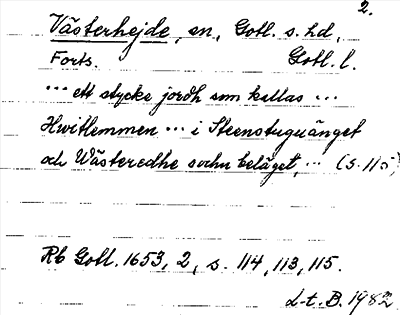 2.
Västerhejde, sn, Gotl. s. hd,
Forts. Gotl. l.
... ett stycke jordh som kallas ...
Hwitlemmen ... i Steenstuguänget
och Wästeredhe sochn beläget, ... (s. 115)
Rb Gotl. 1653, 2, s. 114, 113, 115.
L-t, B. 1982